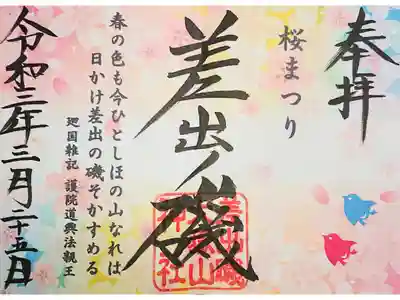 奉拝
桜まつり
差出ノ磯
春の色も今ひとしほの山なれは
日かけ差出の磯そかすめる
廻国雑記 護院道興法親王
令和三年三月二十五日